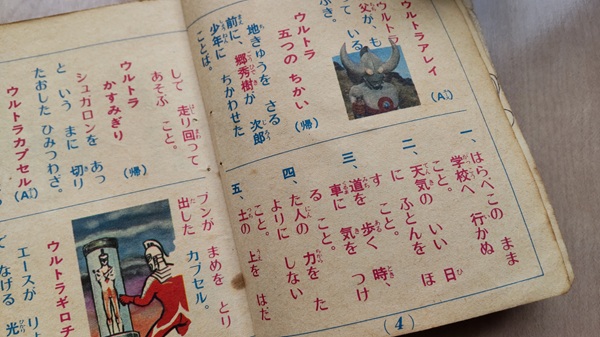 ウルトラアレイ
ウルトラ
父が、も
ている
ぶき。
ウルトラ
五つの ちかい
(帰)
地きゅうを さる
前に、郷秀樹が 次郎
少年に ちかわせた
ことば。
一、はらぺこの まま
学校へ 行かぬ
こと。
二、天気の いい 日
に ふとんを ほ
す こと。
三、道を 歩く 時、
車に 気を つけ
る こと。
四、た人の 力を た
よりに しない
こと。
五、土の 上を はだ
(4)
して 走り回って
あそぶ こと。
ウルトラ
かすみぎり
(帰)
シュガロンを あっ
と いう まに 切り
たおした ひみつわざ。
ウルトラカプセル
ブンが まめを とり
出した カプセル。
ウルトラギロチ
エースが り
なげる 光